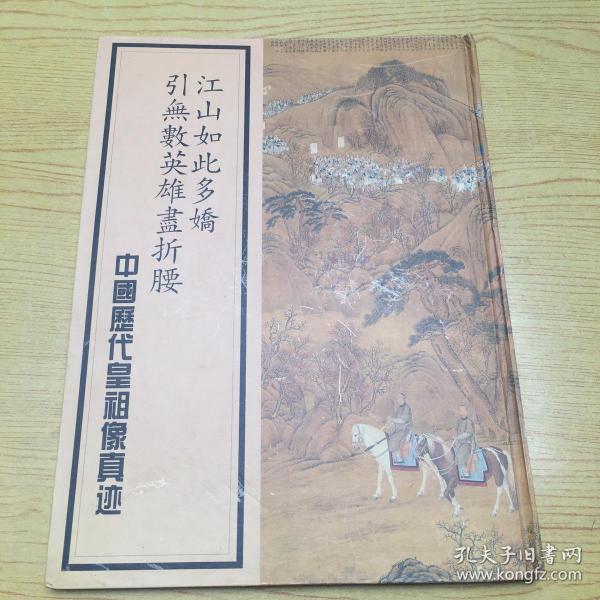 江山如此多嬌
引無數英雄盡折腰
中國歷代皇祖像真迹
孔夫子旧書网
www.kongfz.com